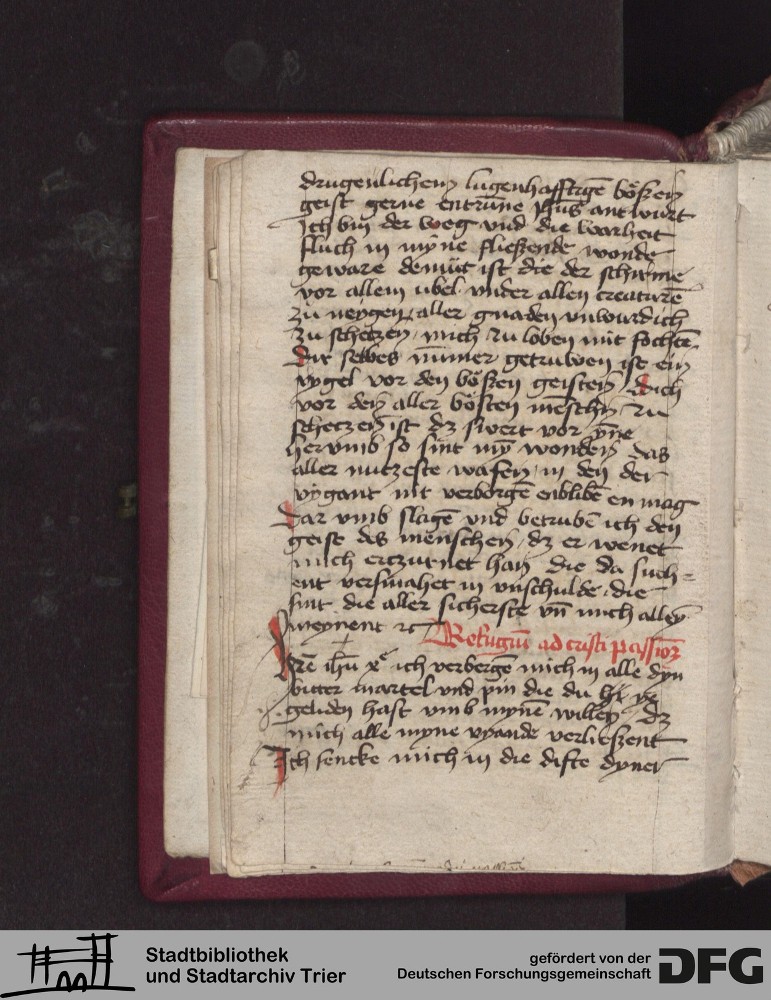 drugenlichen lugenhafftigē bößen
geist gerne entrūne Jhūs antwurt
Ich bin der weg vnd die warheit
fluch in myne fließende wonde
geware demüt ist die der schirme
vor allem ubel vnder allen creaturē
zu neygen aller gnaden vnwurdich
zu schetzen mich zu loben mit fochtē
dir selbes nūmer getruwen ist ein
rygel vor den bößen geisten dich
vor den aller bösten mēschn zu
schetzen ist dz swert vor yne
her vmb so sint my wonden das
aller nutzeste wafen in den der
vygant nit verborgē enblibē en mag
dar vmb slagē vnd betrubē ich den
geist des menschen dz er wenet
mich erczurnet han die da such-
ent versmahet in vnschulde die
sint die aller sicherste vn̄ mich alleyn
meynent ꝛc Refugiū ad cristi passionē
hrē ihū xp̄e ich verbergē mich in alle dyn
bitter martel vnd pin die du
geliden hast vmb mynē willen dz
mich alle myne vyande verließent
Ich sencke mich in die diffe dyner
Stadtbibliothek
und Stadtarchiv Trier
gefördert von der
Deutschen Forschungsgemeinschaft
DFG